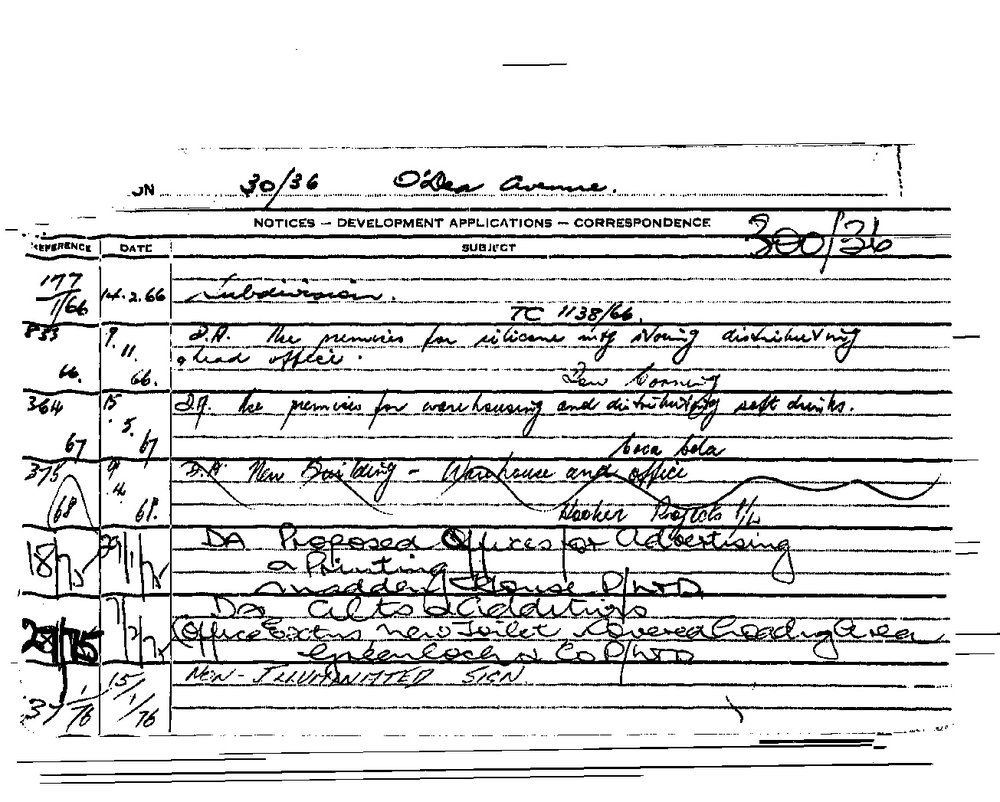 ON 30/36 O'Dea Avenue.
NOTICES — DEVELOPMENT APPLICATIONS — CORRESPONDENCE 300/36
REFERENCE DATE SUBJECT
177 1/66 14.2.66 Subdivision.
TC 1138/66.
833 66. 9. 11. 66. D.A. the premises for silicone mfg storing distributing
& head office.
Dow Corning
364 67 15 5. 67 D.A. the premises for warehousing and distributing soft drinks.
Coca Cola
375 68 9 4 68. D.A. New Building - Warehouse and office
Hooker Projects P/L
18/75 29/1/75 DA Proposed Offices for Advertising
& Printing
Madden House P/LTD
28/75 7/2/75 DA Alts & Additions
(Office Extns new Toilet Covered Loading Area
& Co P/LTD
37 1/76 15/1/76 NON-ILLUMINATED SIGN